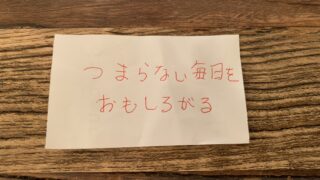 つまらない毎日を
おもしろがる